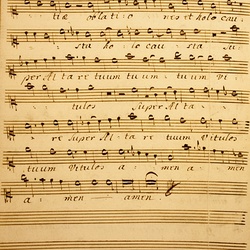 tiæ oblati o nes et holo cau
sta ho lo cau sta su
per Al ta re tuum tu um tuum vi
tulos super Al ta
re super Al ta re tuum Vitulos
tuum Vitulos a men a m
a men amen